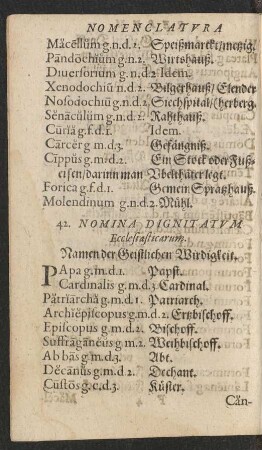 NOMENCLATVRA
Măcĕllŭm g.n.d.2. Speißmärckt/metzig.
Pandochium g.n.2. Wirtshauß.
Diuersorium g.n.d.2. Idem.
Xenodochiŭ n.d.2. Bilgerhauß/Elender
Nosodochiŭ g.n.d.2. Siechspital/(herberg.
Sĕnăcŭlŭm g.n.d.2. Rahthauß.
Cŭrĭă g.f.d.1. Idem.
Cărcĕr g.m.d.3. Gefängniß.
Cĭppŭs g.m.d.2. Ein Stock oder Fuß-
eisen/darinn man Vbelthäter legt.
Forica g.f.d.1. Gemein Sprachhauß.
Molendinum g.n.d.2. Mühl.
42. NOMINA DIGNITATVM
Ecclesiasticarum.
Namen der Geistlichen Wirdigkeit.
PApa g.m.d.1. Papst.
Cardinalis g.m.d.3. Cardinal.
Pătrĭarchă g.m.d.1. Patriarch.
Archĭĕpĭscopus g.m.d.2. Ertzbischoff.
Episcopus g.m.d.2. Bischoff.
Sŭffrăgănĕŭs g.m.2. Weihbischoff.
Ab băs g.m.d.3. Abt.
Dĕcănŭs g.m.d.2. Dechant.
Cŭstōs g.c.d.3. Küster.
Căn-